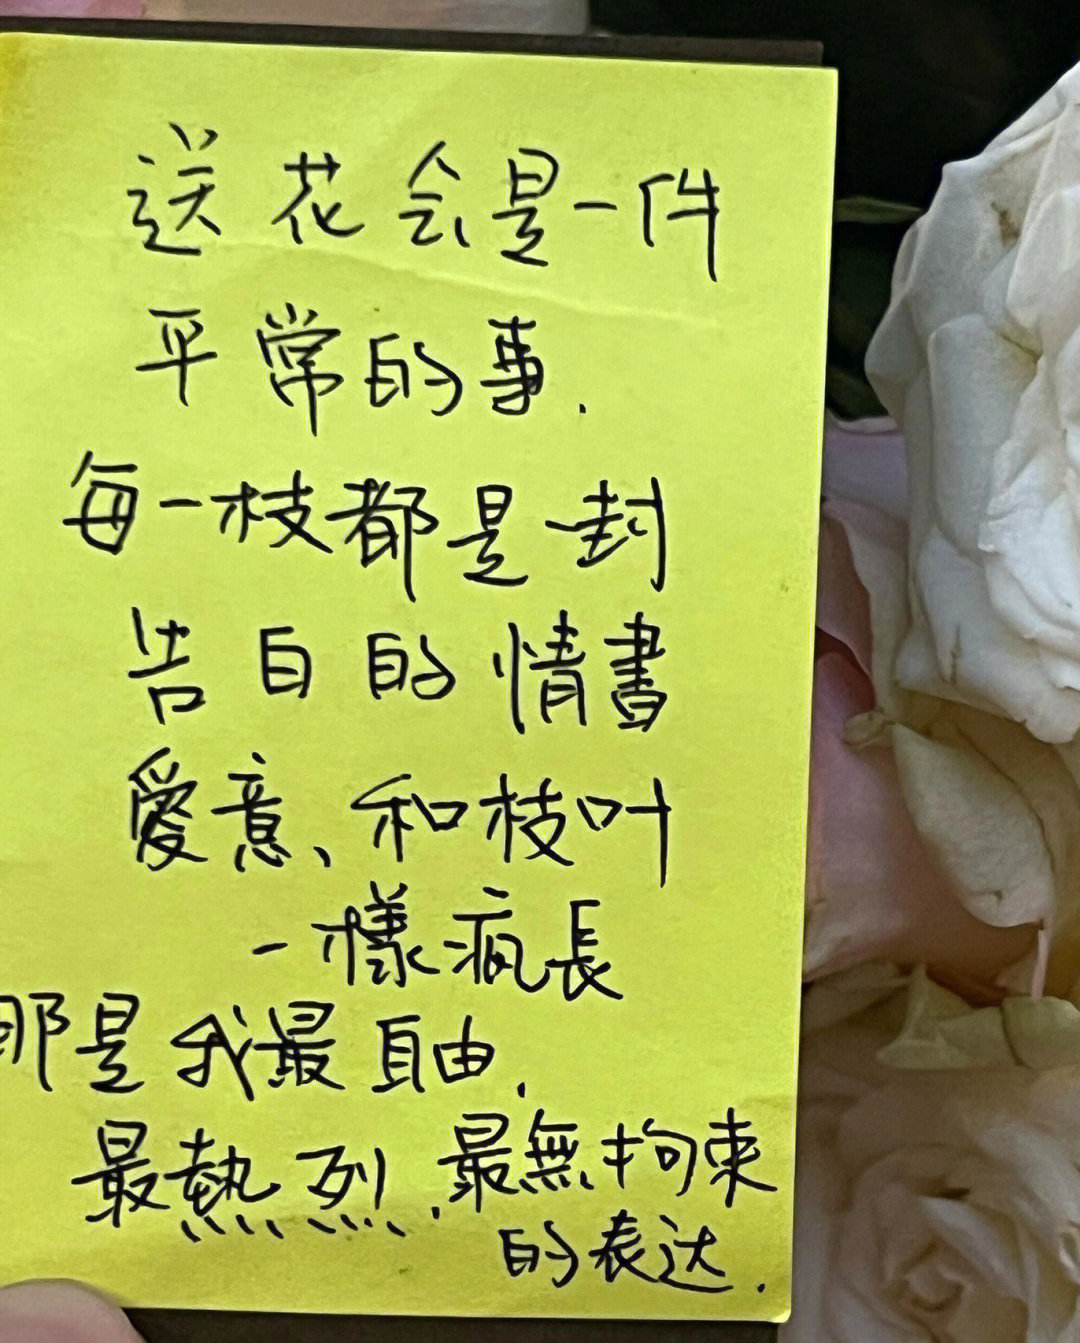 送花会是一件
平常的事.
每一枝都是一封
告白的情書
愛意、和枝叶
一樣疯長
那是我最自由.
最熱烈.最無拘束
的表达.